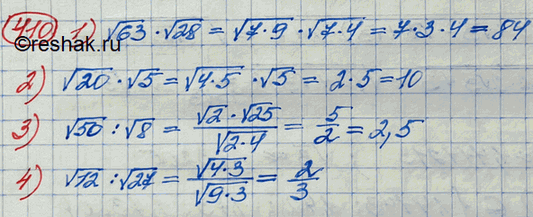 410 1) √63 · √28 = √7·9 · √7·4 = 7·3·4 = 84
©reshak.ru
2) √20 · √5 = √4·5 · √5 = 2·5 = 10
3) √50 : √8 = √2·√25 / √2·4 = 5/2 = 2,5
4) √12 : √27 = √4·3 / √9·3 = 2/3